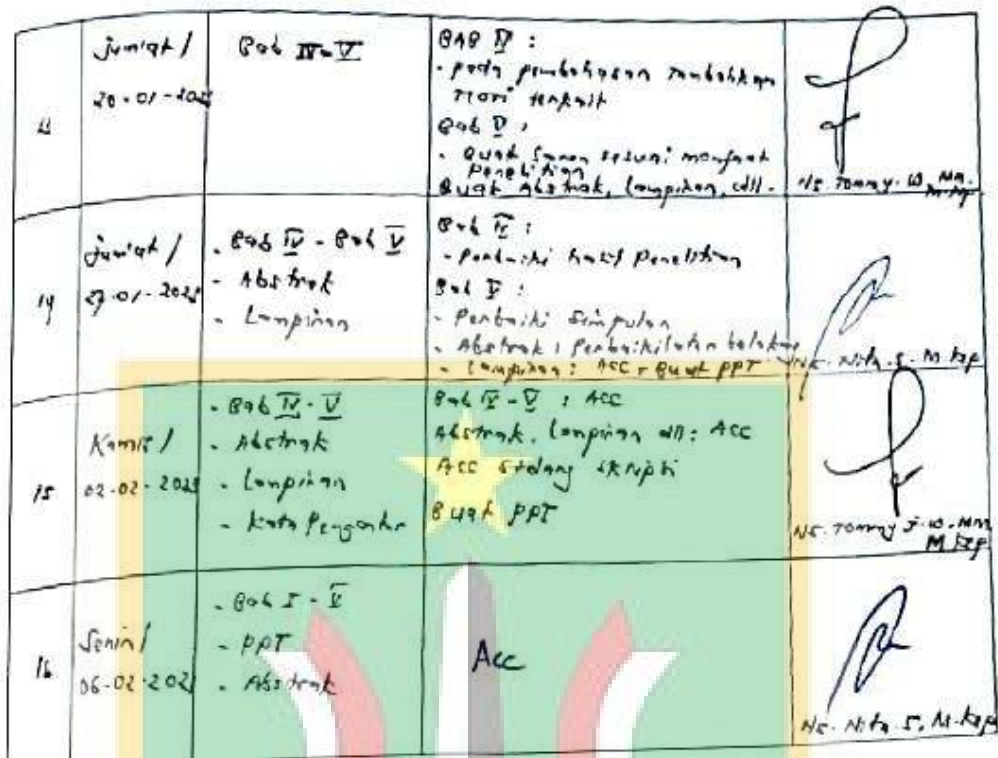 Jum'at /
20-01-202
Bab IV-V
BAB IV :
- pada pembahasan tambahkan
teori terkait
Bab V :
- Buat saran sesuai manfaat
Penelitian
Buat Abstrak, Lampiran, dll.
Ns. Tommy. W, MM.
M.Kep
14
Jum'at /
27-01-2023
- Bab IV - Bab V
- Abstrak
- Lampiran
Bab IV :
- Perbaiki hasil Penelitian
Bab V :
- Perbaiki Simpulan
- Abstrak : Perbaiki latar belakang
- Lampiran : ACC - Buat PPT
Ns. Nita. S. M.Kep
15
Kamis /
02-02-2023
- Bab IV - V
- Abstrak
- Lampiran
- Kata Pengantar
Bab IV - V : ACC
Abstrak, Lampiran dll : ACC
ACC sidang skripsi
Buat PPT
Ns. Tommy J. W. MM
M.Kep
16
Senin /
06-02-202
- Bab I - V
- PPT
- Abstrak
Acc
Ns. Nita. S, M.Kep